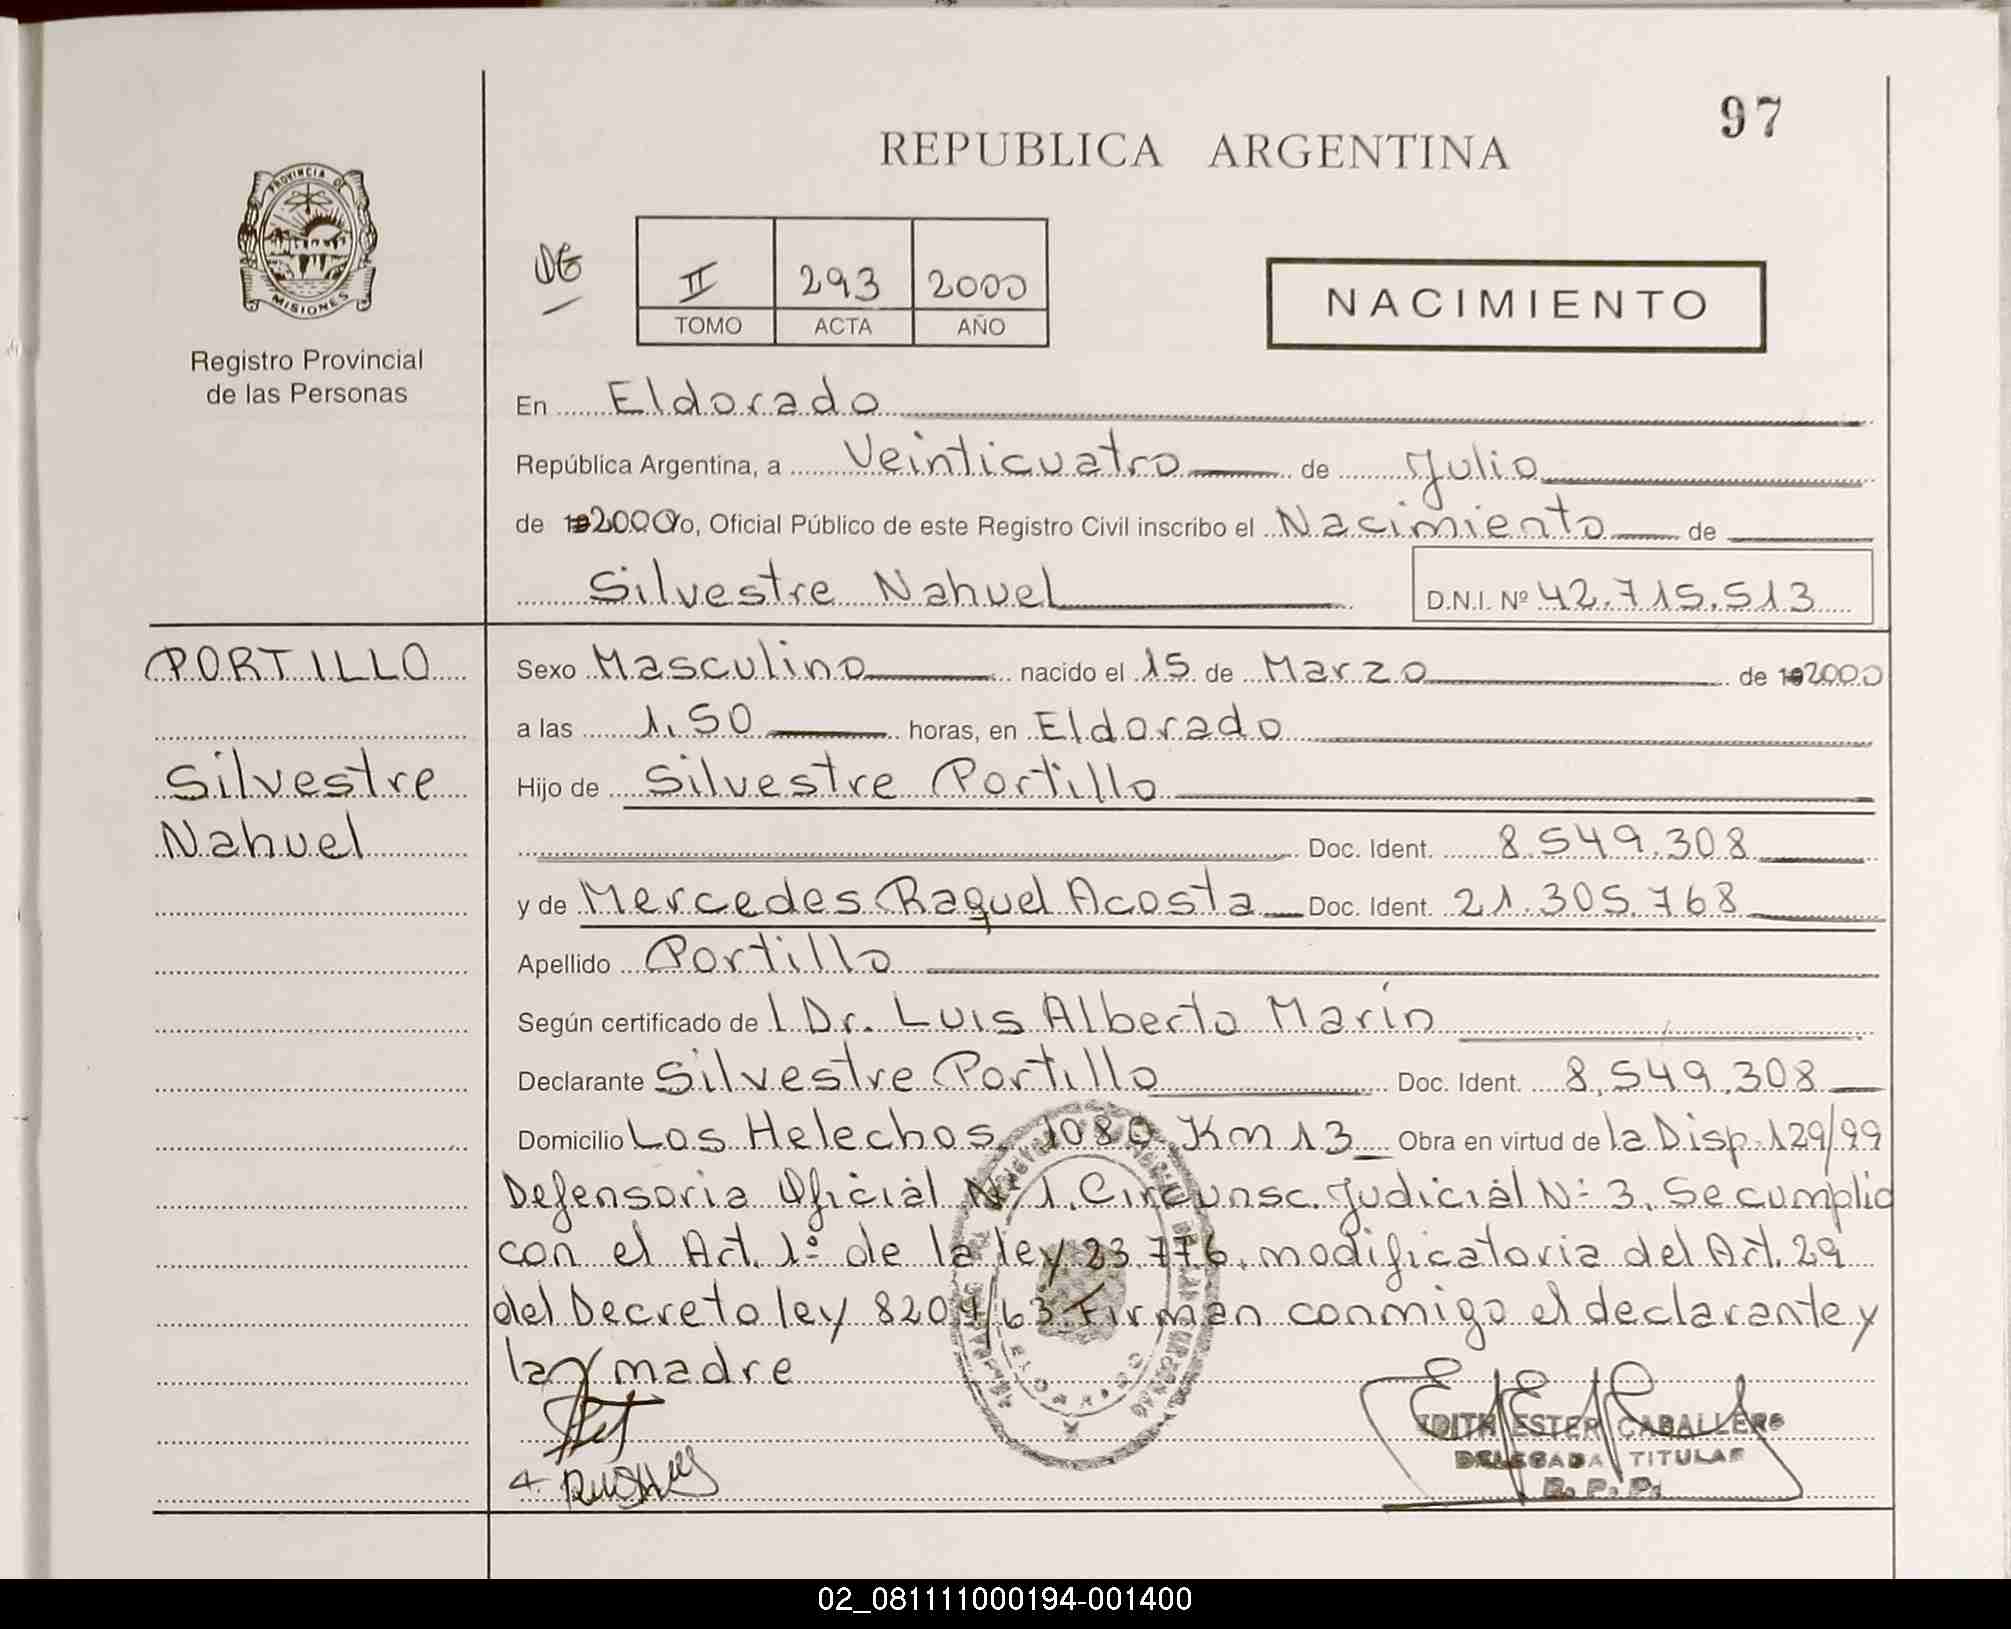 97
REPUBLICA ARGENTINA
PROVINCIA DE
MISIONES
Registro Provincial
de las Personas
DG
II 293 2000
TOMO ACTA AÑO
NACIMIENTO
En Eldorado
República Argentina, a Veinticuatro de Julio
de 2000 yo, Oficial Público de este Registro Civil inscribo el Nacimiento de
Silvestre Nahuel D.N.I. Nº 42.715.513
PORTILLO
Silvestre
Nahuel
Sexo Masculino nacido el 15 de Marzo de 2000
a las 1.50 horas, en Eldorado
Hijo de Silvestre Portillo
Doc. Ident. 8.549.308
y de Mercedes Raquel Acosta Doc. Ident. 21.305.768
Apellido Portillo
Según certificado de l Dr. Luis Alberto Marín
Declarante Silvestre Portillo Doc. Ident. 8.549.308
Domicilio Los Helechos 1080 Km 13 Obra en virtud de la Disp. 129/99
Defensoria Oficial Nº 1. Circunsc. Judicial Nº 3. Se cumplio
con el Art. 1º de la ley 23.776. modificatoria del Art. 29
del Decreto ley 8204/63 Firman conmigo el declarante y
la madre
EDITH ESTER CABALLERO
DELEGADA TITULAR
R. P. P.
02_081111000194-001400